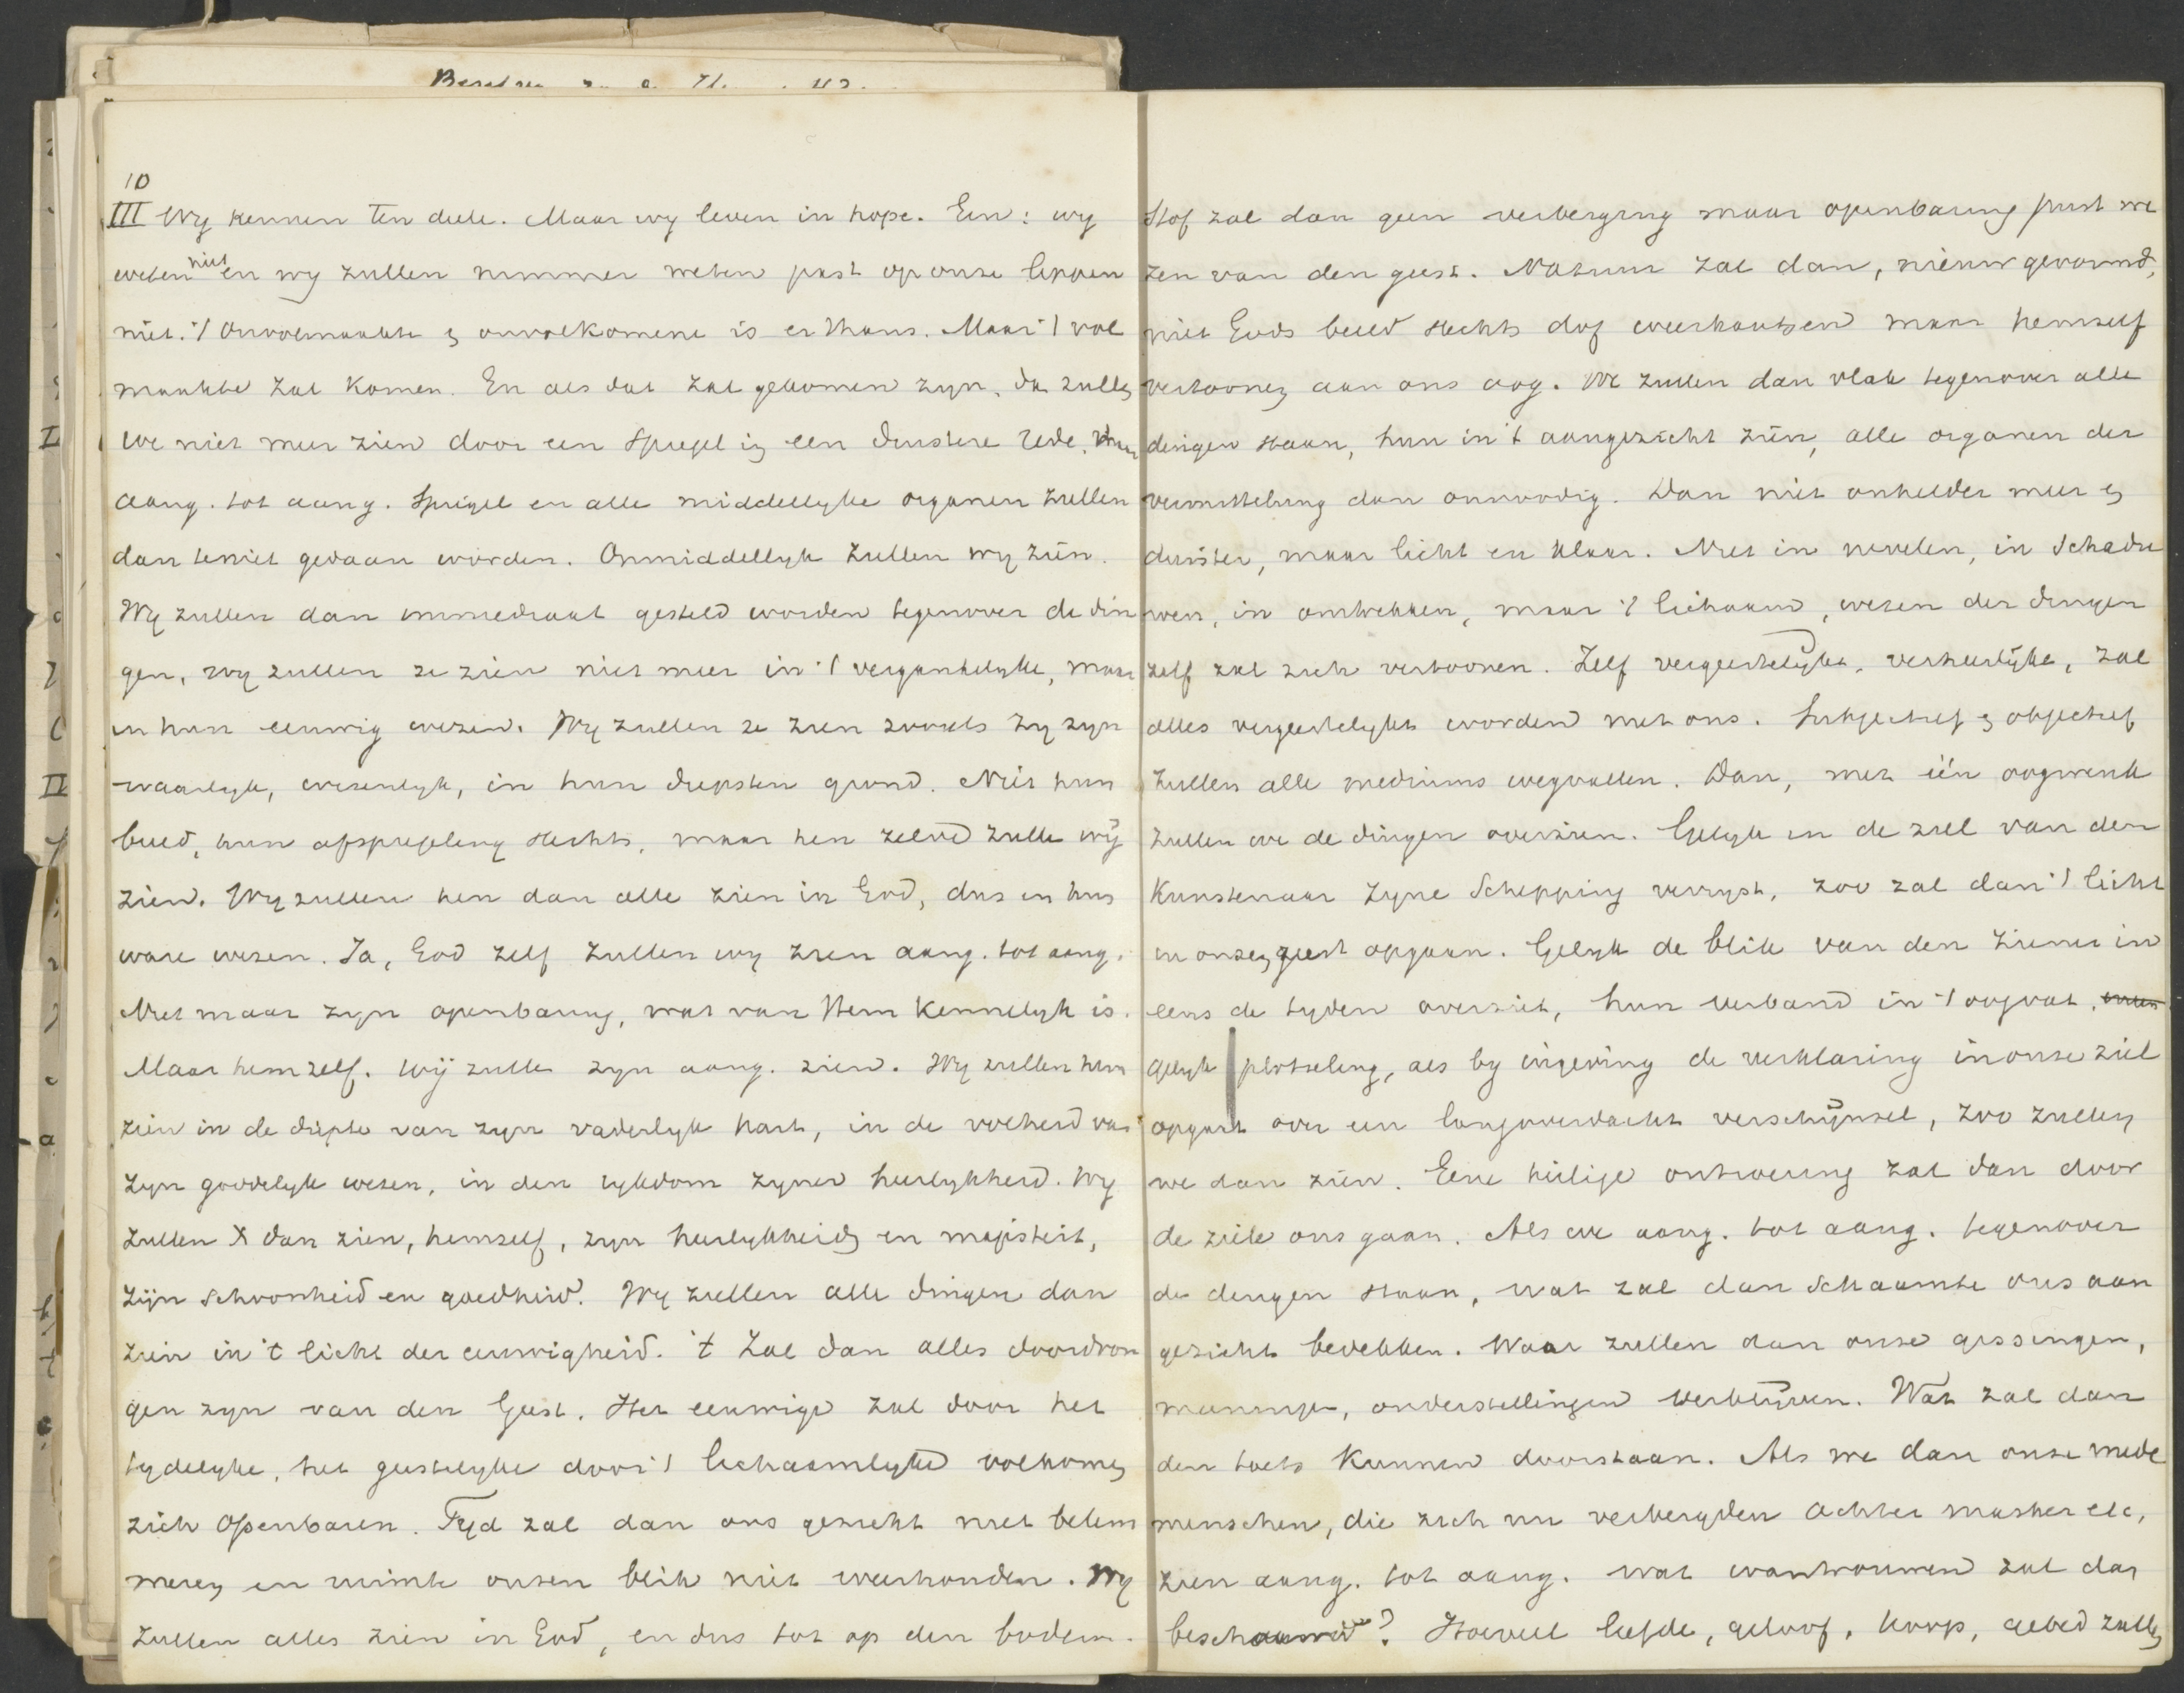 10
III Wy kennen ten deele. Maar wy leven in hope. Een: wy
weten niet en wy zullen nimmer weten past op onze lippen
niet. 't Onvolmaakte en onvolkomene is er thans. Maar 't vol
maakte zal komen. En als dat zal gekomen zyn, da zullen
we niet meer zien door een spiegel in een duistere rede, maar
aang. tot aang. Spiegel en alle middellyke organen zullen
dan teniet gedaan worden. Onmiddellyk zullen wy zien.
Wy zullen dan immediaat gesteld worden tegenover de din
gen, wy zullen ze zien niet meer in 't vergankelyke, maar
in hun eeuwig wezen. Wy zullen ze zien zooals zy zyn
waarlyk, wezenlyk, in hun diepsten grond. Niet hun
beeld, hun afspiegeling slechts, maar hen zelve zulle wij
zien. Wy zullen hen dan alle zien in God, dus in hun
ware wezen. Ja, God zelf zullen wy zien aang. tot aang.
Niet maar zyn openbaring, wat van Hem kennelyk is.
Maar hemzelf. Wij zulle zyn aang. zien. Wy zullen hem
zien in de diepte van zyn vaderlyk hart, in de volheid van
zyn goddelyk wezen, in den rykdom zyner heerlykheid. Wy
zullen dan zien, hemzelf, zyn heerlykheid en majesteit,
zijn schoonheid en goedheid. Wy zullen alle dingen dan
zien in 't licht der eeuwigheid. 't Zal dan alles doordron
gen zyn van den Geest. Het eeuwige zal door het
tydelyke, het geestelyke door 't lichaamlyke volkomen
zich openbaren. Tyd zal dan ons gezicht niet belem
meren en ruimte onzen blik niet weerhouden. Wy
zullen alles zien in God, en dus tot op den bodem.
Stof zal dan geen verberging maar openbaring juist we
zen van den geest. Natuur zal dan, nieuw gevormd,
niet Gods beeld slechts dof weerkaatsen maar hemzelf
vertoonen aan ons oog. We zullen dan vlak tegenover alle
dingen staan, hun in 't aangezicht zien, alle organen der
vermittelung dan onnoodig. Dan niet onhelder meer en
duister, maar licht en klaar. Niet in nevelen, in schadu
wen, in omtrekken, maar 't lichaam, wezen der dingen
zelf zal zich vertoonen. Zelf vergeestelijkt, verheerlijkt, zal
alles vergeestelykt worden met ons. Subjectief en objectief
zullen alle mediums wegvallen. Dan, met één oogwenk
zullen we de dingen overzien. Gelyk in de ziel van den
Kunstenaar zyne Schepping verryst, zoo zal dan 't licht
in onzen geest opgaan. Gelyk de blik van den Ziener in
eens de tyden overziet, hun verband in 't oog vat,
gelyk plotseling, als by ingeving de verklaring in onze ziel
opgaat over een langoverdacht verschijnsel, zoo zullen
we dan zien. Eene heilige ontroering zal dan door
de ziele ons gaan. Als we aang. tot aang. tegenover
de dingen staan, wat zal dan schaamte ons aan
gezicht bedekken. Waar zullen dan onze gissingen,
meeningen, onderstellingen verblijven. Wat zal dan
den toets kunnen doorstaan. Als we dan onze mede
menschen, die zich nu verbergden achter masker etc,
zien aang. tot aang. wat wantrouwen zal dan
beschaamd? Hoeveel liefde, geloof, hoop, gebed zullen